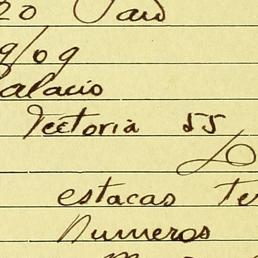 20 Pard
9/09
alacio
Tectoria 55
estacas Te
Numeros